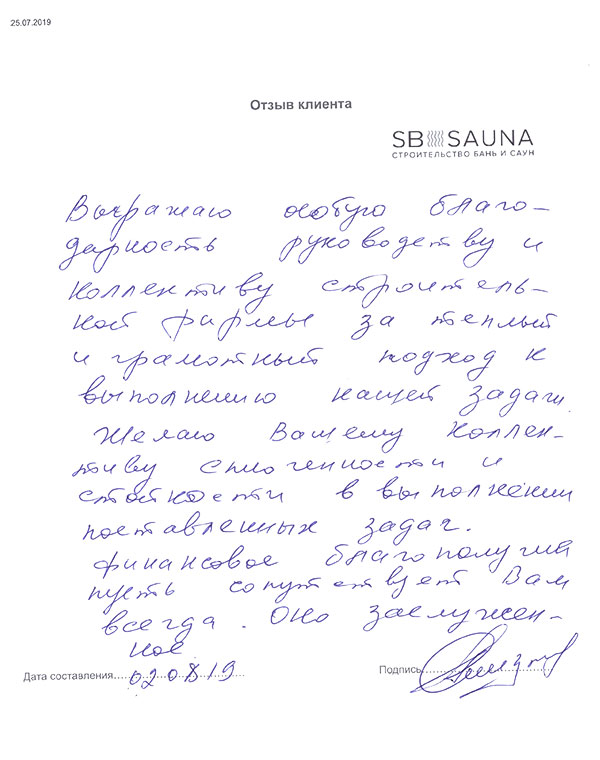 25.07.2019
Отзыв клиента
SB SAUNA
СТРОИТЕЛЬСТВО БАНЬ И САУН
Выражаю особую благо-
дарность руководству и
коллективу строитель-
ной фирмы за теплый
и грамотный подход к
выполнению нашей задачи
Желаю Вашему коллек-
тиву сплоченности и
стойкости в выполнении
поставленных задач.
Финансовое благополучия
пусть сопутствует Вам
всегда. Оно заслужен-
ное
Дата составления 020819
Подпись